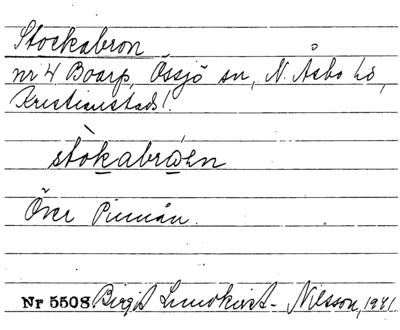 Stockabron
nr 4 Boarp, Össjö sn, N. Åsbo hd,
Kristianstads l.
stòkabrωen
Över Pinnån.
Nr 5508 Birgit Lundkvist-Nilsson, 1941